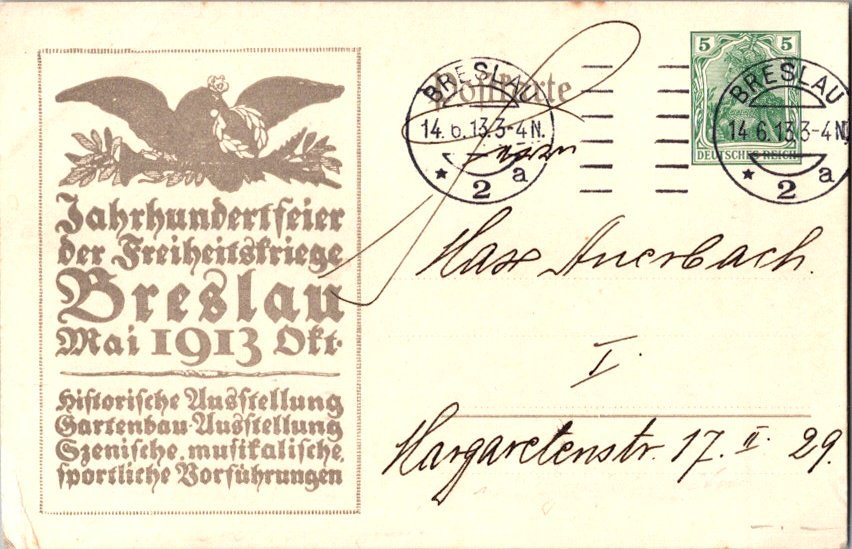 Jahrhundertfeier
der Freiheitskriege
Breslau
Mai 1913 Okt.
Historische Ausstellung
Gartenbau-Ausstellung
Szenische, musikalische,
sportliche Vorführungen
Postkarte
BRESLAU
14.6.13.3-4N.
* 2 a
5 5
DEUTSCHES REICH
BRESLAU
14.6.13.3-4N.
* 2 a
Max Auerbach.
I.
Margaretenstr. 17. II. 29.